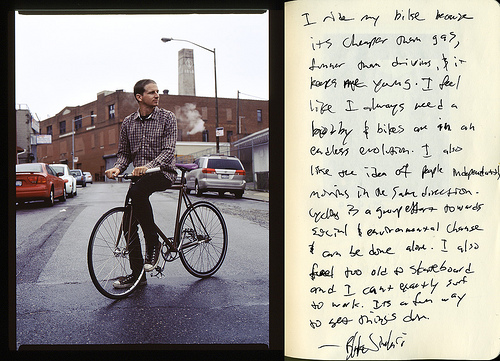 I ride my bike because
its cheaper than gas,
funner than driving, & it
keeps me young. I feel
like I always need a
hobby & bikes are in an
endless evolution. I also
like the idea of people independently
moving in the same direction.
Cycling is a group effort towards
social & environmental change
& can be done alone. I also
feel too old to skateboard
and I can't exactly surf
to work. Its a fun way
to get things done.